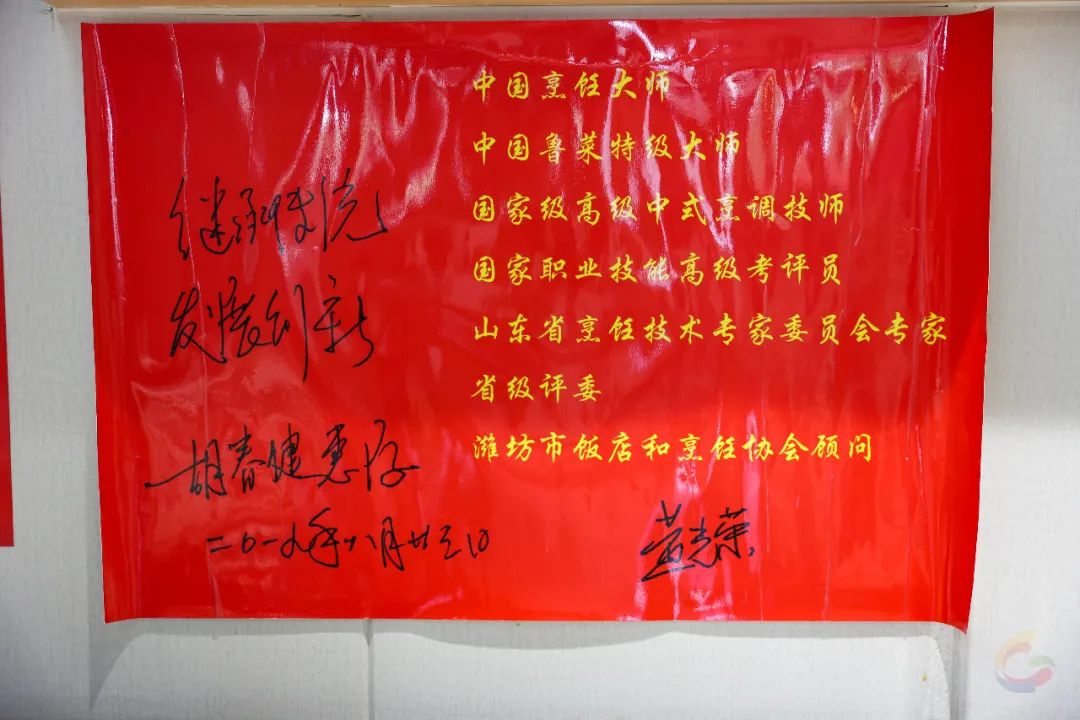 中国烹饪大师
中国鲁菜特级大师
国家级高级中式烹调技师
国家职业技能高级考评员
山东省烹饪技术专家委员会专家
省级评委
潍坊市饭店和烹饪协会顾问
继承传统
发展创新
胡春健惠存
二0一九年八月廿三日